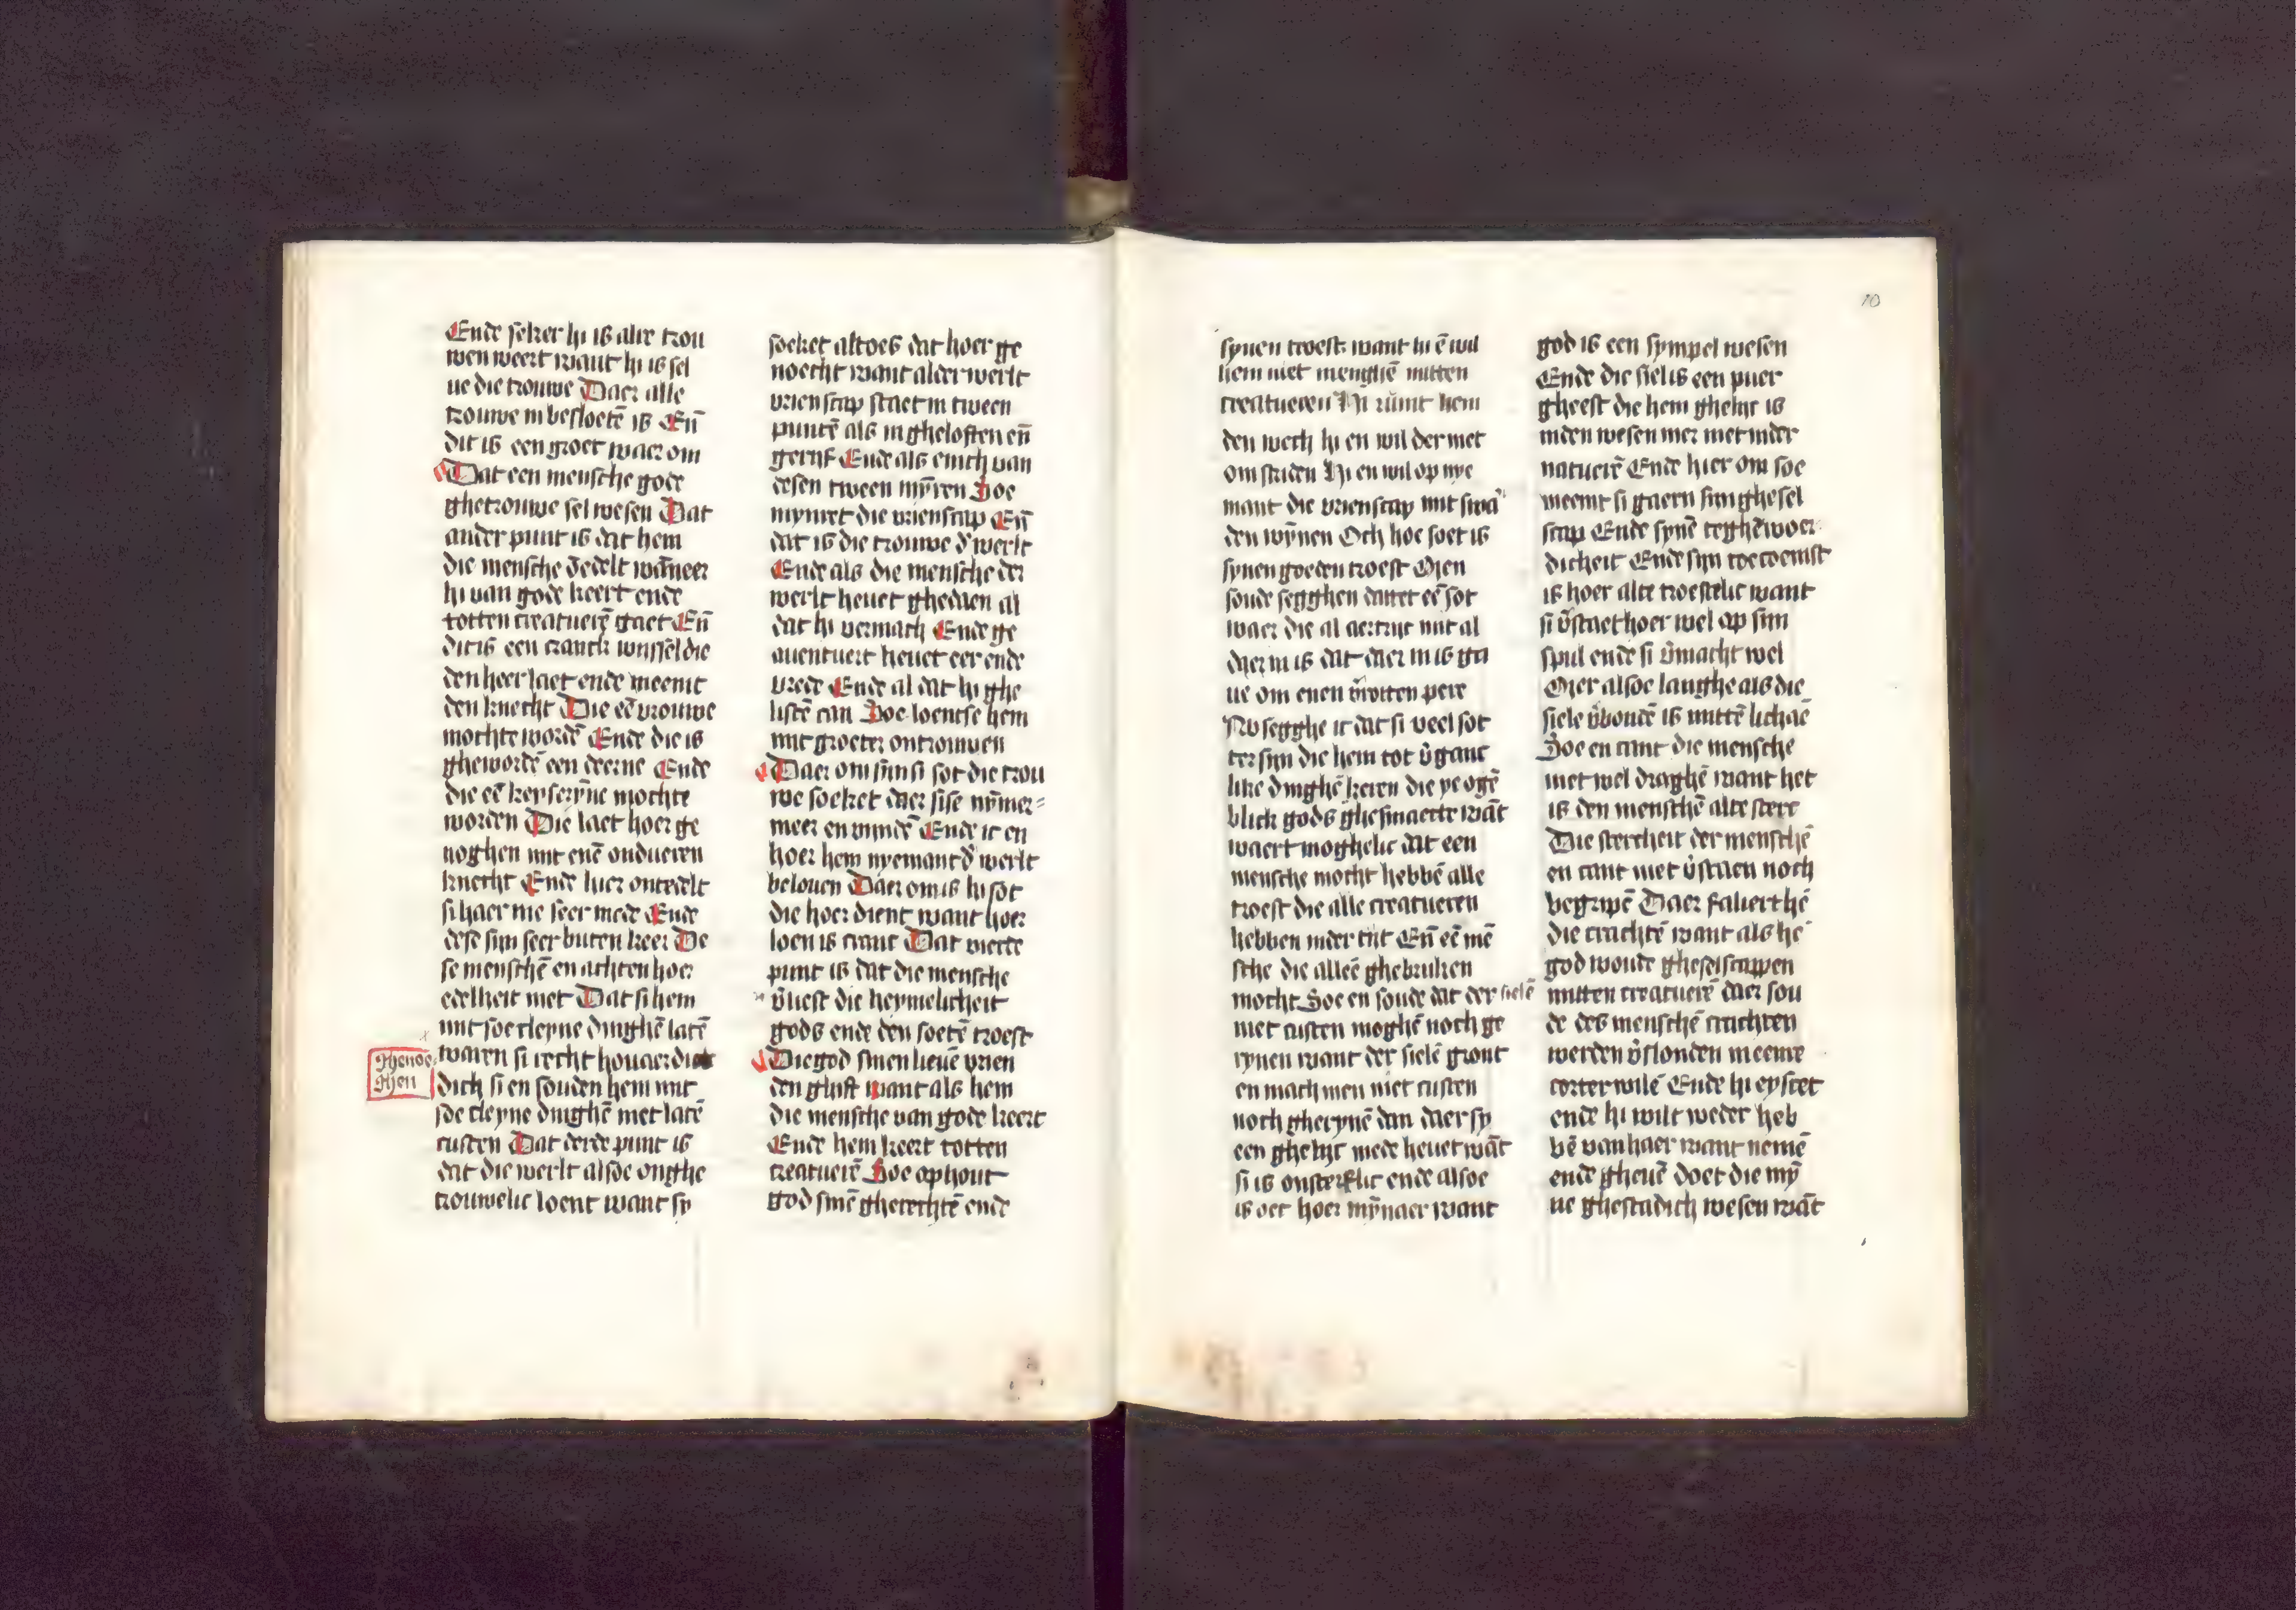 Ende seker hi is alre trou
wen weert want hi is sel
ue die trouwe Daer alle
trouwe in besloetē is Eñ
dit is een groet waer om
Dat een mensche gode
ghetrouwe sel wesen Dat
ander punt is dat hem
die mensche ōedelt wāneer
hi van gode keert ende
totten creatuerē gaet Eñ
dit is een cranck wissel die
den heer laet ende neemt
den knecht Die eē vrouwe
mochte wordē Ende die is
ghewordē een deerne Ende
die eē keyserȳne mochte
worden Die laet hoer ge
noghen mit enē ondueren
knecht Ende hier onteedelt
si haer me seer mede Ende
dese sijn seer buten keer De
se menschē en achten hoer
edelheit niet Dat si hem
mit soe cleyne dinghē latē
ghenoe
ghen
waren si recht houaerdi
dich si en souden hem mit
soe cleyne dinghē niet latē
rusten Dat derde punt is
dat die werlt alsoe onghe
trouwelic loent want sy
soeket altoes dat hoer ge
noecht want alder werlt
vrienscap staet in tween
puntē als in gheloften eñ
gerijf Ende als enich van
desen tween mȳren Soe
mynret die vrienscap Eñ
dat is die trouwe d' werlt
Ende als die mensche der
werlt heuet ghedaen al
dat hi vermach Ende ge
auentuert heuet eer ende
vrede Ende al dat hi ghe
listē can Soe loentse hem
mit groeter ontrouwen
Daer om sijn si sot die trou
we soeket daer sise nȳmer=
meer en vindē Ende ic en
hoer hem nyemant d' werlt
belouen Daer om is hi sot
die hoer dient want hoer
loen is cranc Dat vierde
punt is dat die mensche
v'liest die heymelicheit
gods ende den soetē troest
Die god sinen lieuē vrien
den ghift want als hem
die mensche van gode keert
Ende hem keert totten
creatuerē Soe ophout
god sinē gherechtē ende
10
synen troest want hi ē wil
hem niet menghē mitten
creatueren Hi rūmt hem
den wech hi en wil der niet
om striden Hi en wil op nye
mant die vrienscap mit swa
den wȳnen Och hoe soet is
synen goeden troest Men
soude segghen dattet eē sot
waer die al aertrijc mit al
daer in is dat daer in is ga
ue om enen v'rotten pere
No segghe ic dat si veel sot
ter sijn die hem tot v'ganc
like dinghē keren die ye ogē
blick gods ghesmaecte wāt
waert moghelic dat een
mensche mocht hebbē alle
troest die alle creatueren
hebben inder tijt Eñ eē mē
sche die alleē ghebruken
mocht Soe en soude dat der sielē
niet rusten moghē noch ge
rynen want der sielē gront
en mach men niet rusten
noch gherynē dan daer sy
een ghelijc mede heuet wāt
si is onsterflic ende alsoe
is oec hoer mȳnaer want
god is een sympel wesen
Ende die siel is een puer
gheest die hem ghelijc is
inden wesen mer niet inder
natuerē Ende hier om soe
neemt si gaern sijn ghesel
scap Ende synē teghēwoer
dicheit Ende sijn toecoemst
is hoer alte troestelic want
si v'staet hoer wel op sijn
spul ende si v'macht wel
Mer alsoe langhe als die
siele v'bondē is mittē lichaē
Soe en cant die mensche
niet wel draghē want het
is den menschē alte sterc
Die stercheit der menschē
en cant niet v'staen noch
begripē Daer faliert hē
die crachtē want als hē
god woude gheselscappen
mitten creatuerē daer sou
de des menschē crachten
werden v'slonden in eenre
corter wilē Ende hi eyscet
ende hi wilt weder heb
bē van haer want nemē
ende gheuē doet die mȳ
ne ghestadich wesen wāt